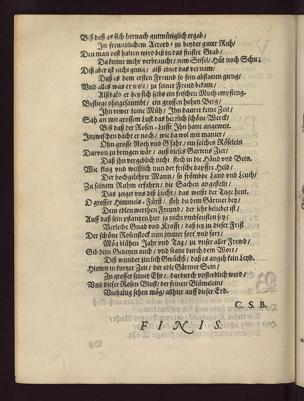 Biß daß es sich hernach gutwilliglich ergab/
In freundlichem Accord/ zu beyder guter Ruh/
Den man vest halten wird biß in das finstre Grab/
Da keiner mehr verbraucht/ new Stifel/ Hüt noch Schu;
Diß aber ist nicht gnug/ alß einer das vernam/
Daß es dem ersten Freund so sein abstatten gieng/
Und alles was er wolt/ zu seiner Frewd bekam/
Alßbald er bey sich selbs ein frischen Muth empfieng.
Bestiege ohngesäumbt/ ein grossen hohen Berg/
Ihn rewet keine Müh/ Ihn dauret keine Zeit/
Sah an mit grossem Lust das herrlich schöne Werck/
Biß daß der Rosen-dufft Ihn hart angeweit.
Inzwischen dacht er noch/ wie da wol mit manier/
Ohn grosse Noth und Gfahr/ ein solches Röselein
Darvon zu bringen wär/ auß disem Garten Zier/
Daß ihn vergeblich nicht steck in die Händ und Bein.
Wie fing und weißlich nun der frische dapffre Held/
Der hochgelehrte Mann/ so frembde Land und Leuth/
Zu seinem Ruhm erfahrn/ die Sachen angestelt/
Das zeiget uns diß Liecht/ das weist der Tage heut.
O grosser Himmels-Fürst/ steh du dem Gärtner bey/
Dem edlen werthen Freund/ der sehr beliebet ist/
Auff daß sein pflantzen hier ja nicht umbsonsten sey/
Verleihe Gnad und Krafft/ daß zu zu diser Frist
Der schöne Rosenstock nun immer fort und fort/
Mög blühen Jahr und Tag/ zu unser aller Frewd/
Gib dein Gedeyen auch/ und segne durch dein Wort/
Diß wunder zierlich Gewächß/ daß es angeh kein Leyd.
Hiemit in kurtzer Zeit/ der edle Gärtner Sein/
Zu grosser seiner Ehr/ dardurch usterblich werd/
Und diser Rosen Blust/ der seinen Blümelein/
Vielfältig sehen mög/ allhier auff diser Erd.
C. S. B.
FINIS.